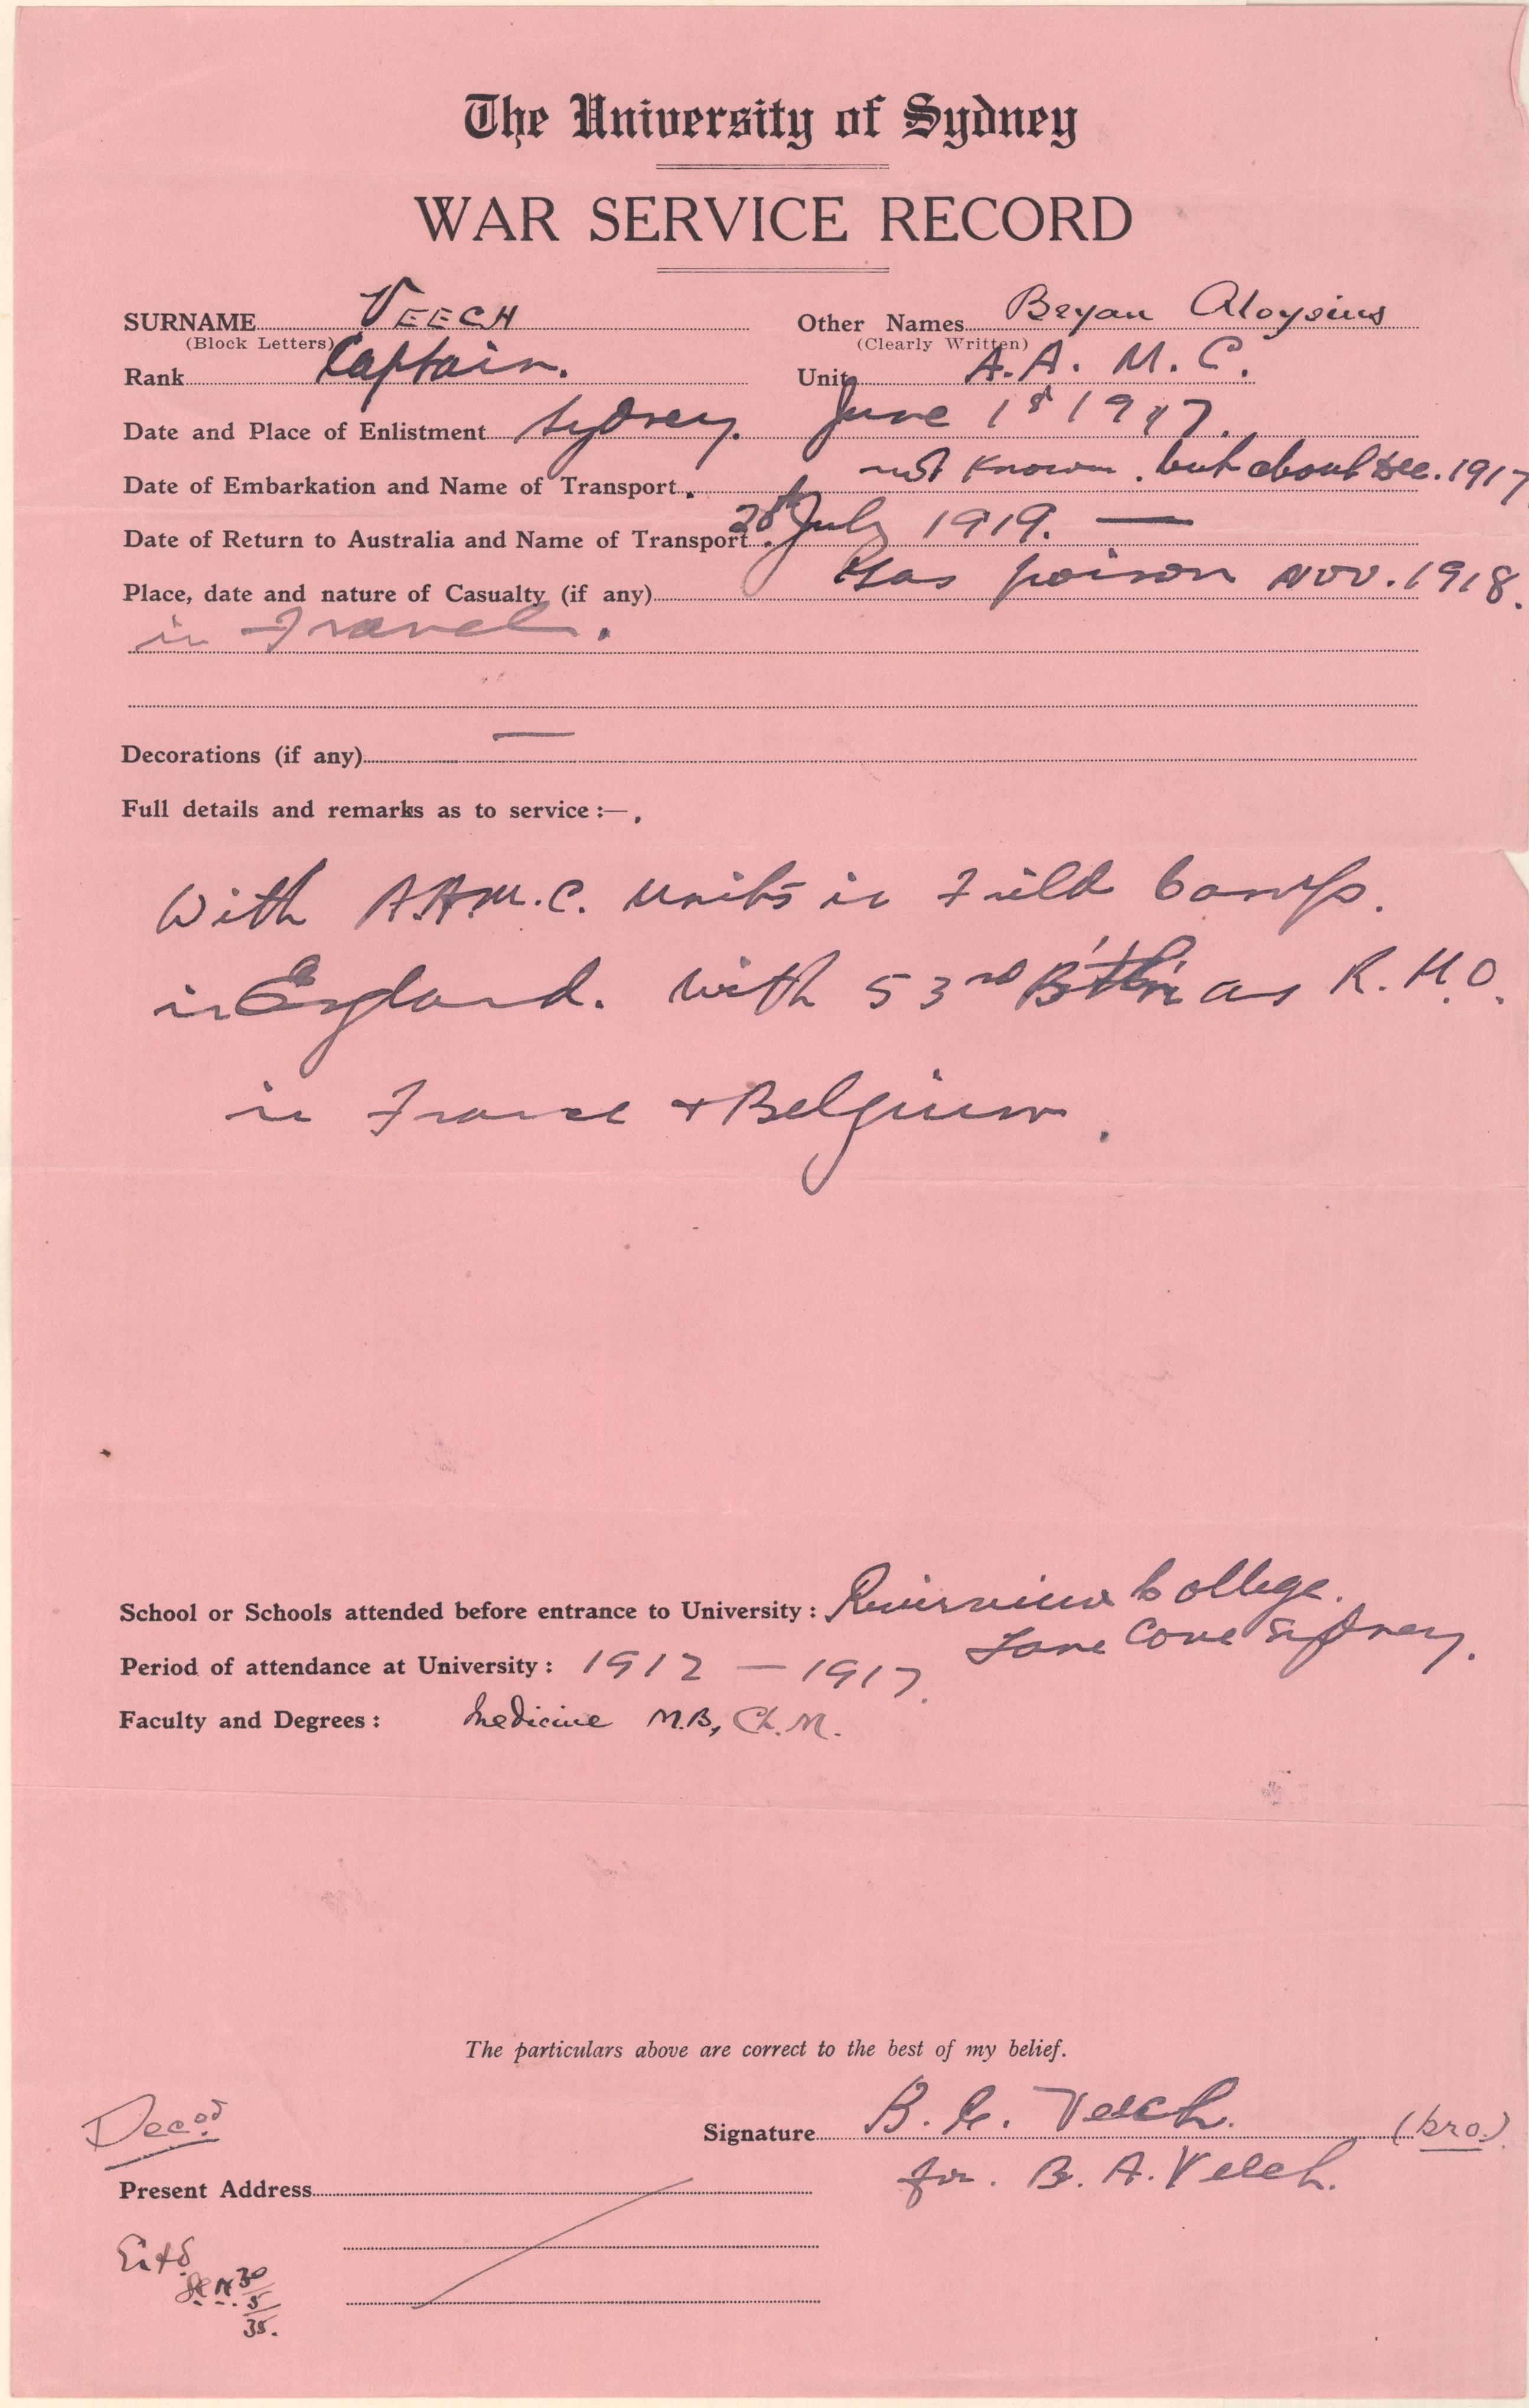 The University of Sydney
WAR SERVICE RECORD
SURNAME VEECH Other Names Bryan Aloysius
(Block Letters) (Clearly Written)
Rank Captain. Unit A.A. M.C.
Date and Place of Enlistment Sydney. June 1st 1917.
Date of Embarkation and Name of Transport. not known. but about Dec. 1917
Date of Return to Australia and Name of Transport July 1919. —
Place, date and nature of Casualty (if any) Gas poison NOV. 1918.
in France.
Decorations (if any) —
Full details and remarks as to service :—.
With A.A.M.C. units in Field Camps.
in England. With 53rd as R.M.O.
in France + Belgium.
School or Schools attended before entrance to University : Riverview College.
Lane Cove Sydney.
Period of attendance at University : 1912 — 1917.
Faculty and Degrees : Medicine M.B., Ch.M.
The particulars above are correct to the best of my belief.
Decd
Signature B. Veech. (bro.)
for. B. A. Veech.
Present Address
Entd
30
5
35.